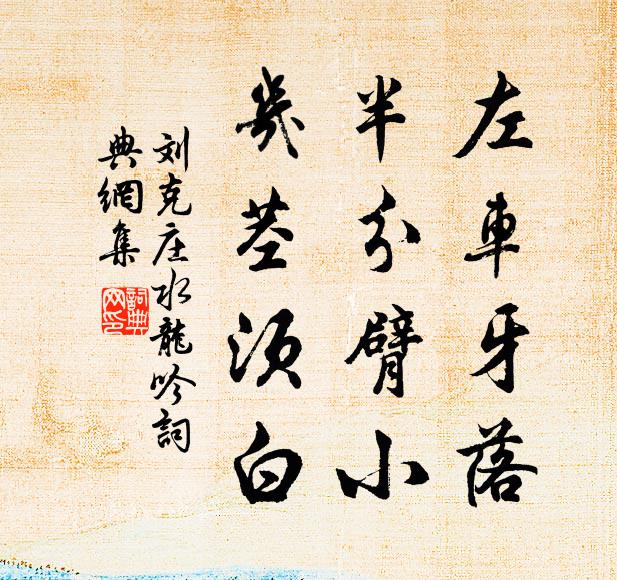 左車牙落
半分臂小
幾茎須白
刘克庄水龍吟詞
典網集
詞典
网印